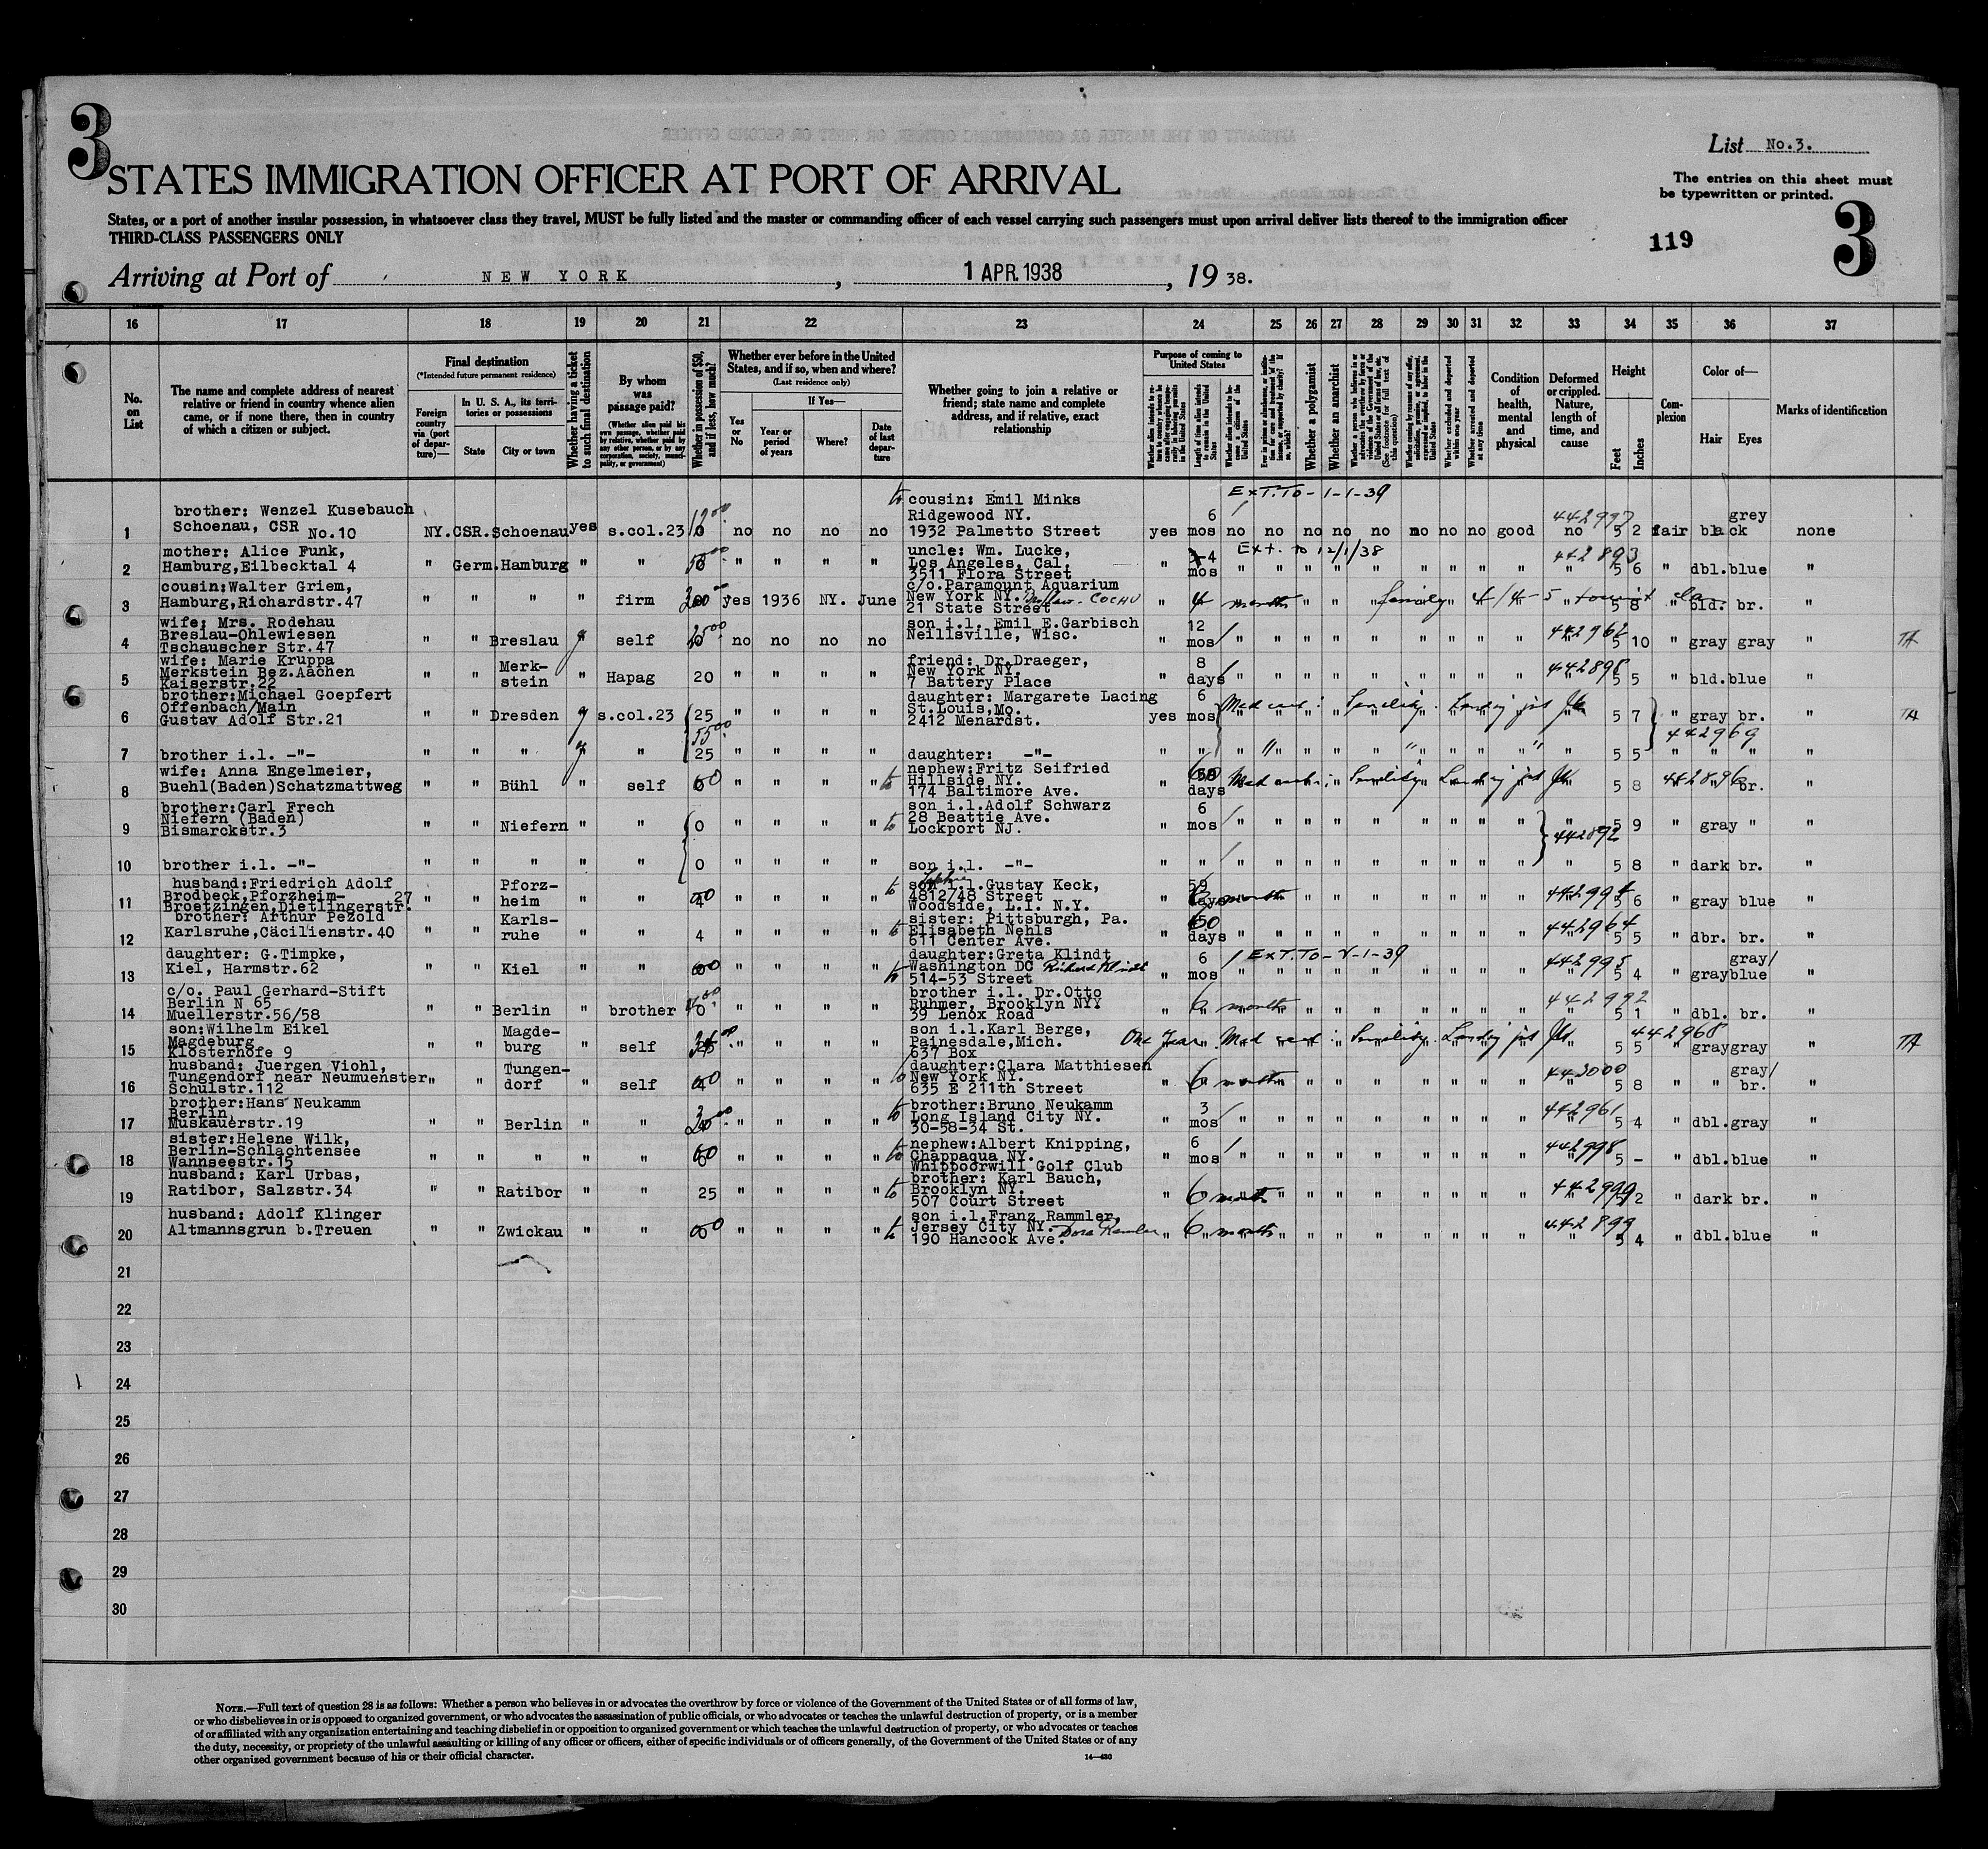 3
STATES IMMIGRATION OFFICER AT PORT OF ARRIVAL
List No.3.
The entries on this sheet must
be typewritten or printed.
States, or a port of another insular possession, in whatsoever class they travel, MUST be fully listed and the master or commanding officer of each vessel carrying such passengers must upon arrival deliver lists thereof to the immigration officer
THIRD-CLASS PASSENGERS ONLY
119
3
Arriving at Port of NEW YORK , 1 APR. 1938 , 19 38.
16 17 18 19 20 21 22 23 24 25 26 27 28 29 30 31 32 33 34 35 36 37
No. on List
The name and complete address of nearest relative or friend in country whence alien came, or if none there, then in country of which a citizen or subject.
Final destination
(*Intended future permanent residence)
Foreign country via (port of departure)—
In U. S. A., its territories or possessions
State
City or town
Whether having a ticket to such final destination
By whom was passage paid?
(Whether alien paid his own passage, whether paid by relative, whether paid by any other person, or by any corporation, society, municipality, or government)
Whether in possession of $50, and if less, how much?
Whether ever before in the United States, and if so, when and where?
(Last residence only)
Yes or No
If Yes—
Year or period of years
Where?
Date of last departure
Whether going to join a relative or friend; state name and complete address, and if relative, exact relationship
Purpose of coming to United States
Whether alien intends to return to country whence he came after engaging temporarily in laboring pursuits in the United States
Length of time alien intends to remain in the United States
Whether alien intends to become a citizen of the United States
Ever in prison or almshouse, or institution for care and treatment of the insane, or supported by charity? If so, which?
Whether a polygamist
Whether an anarchist
Whether a person who believes in or advocates the overthrow by force or violence of the Government of the United States or all forms of law, etc. (See footnote for full text of this question)
Whether coming by reason of any offer, solicitation, promise, or agreement, expressed or implied, to labor in the United States
Whether excluded and deported within one year
Whether arrested and deported at any time
Condition of health, mental and physical
Deformed or crippled. Nature, length of time, and cause
Height
Feet
Inches
Complexion
Color of—
Hair
Eyes
Marks of identification
1 brother: Wenzel Kusebauch
Schoenau, CSR No.10 NY. CSR. Schoenau yes s.col.23 no no no no
to cousin: Emil Minks
Ridgewood NY.
1932 Palmetto Street yes 6 mos no no no no no no no no good no 5 2 fair black grey none
Ext. To - 1-1-39
442997
2 mother: Alice Funk,
Hamburg,Eilbecktal 4 " Germ. Hamburg " " " " " "
uncle: Wm. Lucke,
Los Angeles, Cal.
3511 Flora Street " 4 mos " " " " " " " " " " 5 6 " dbl. blue "
Ext. to 12/1/38
442893
3 cousin:Walter Griem,
Hamburg,Richardstr.47 " " " " firm yes 1936 NY. June
c/o.Paramount Aquarium
New York NY.
21 State Street " 4 months " " " 5 8 " bld. br. "
4 wife: Mrs. Rodehau
Breslau-Ohlewiesen
Tschauscher Str.47 " " Breslau y self no no no no
son i.l. Emil E.Garbisch
Neillsville, Wisc. " 12 mos " " " " " " " " " " 5 10 " gray gray "
442962
5 wife: Marie Kruppa
Merkstein Bez.Aachen
Kaiserstr.22 " " Merk-
stein " Hapag 20 " " " "
friend: Dr.Draeger,
New York NY.
7 Battery Place " 8 days " " " " " " " " " " 5 5 " bld. blue "
6 brother:Michael Goepfert
Offenbach/Main
Gustav Adolf Str.21 " " Dresden y s.col.23 25 " " " "
daughter: Margarete Lacing
St.Louis,Mo.
2412 Menardst. yes 6 mos 5 7 " gray br. "
442969
7 brother i.l. -"- " " " y " 25 " " " "
daughter: -"- " " " " " " " " " " " " 5 5 " " " "
8 wife: Anna Engelmeier,
Buehl(Baden)Schatzmattweg " " Bühl " self " " " "
to nephew:Fritz Seifried
Hillside NY.
174 Baltimore Ave. " days 5 8 br. "
442896
9 brother:Carl Frech
Niefern (Baden)
Bismarckstr.3 " " Niefern " " 0 " " " "
to son i.l.Adolf Schwarz
28 Beattie Ave.
Lockport NJ. " 6 mos " " " " " " " " " " 5 9 " gray " "
442892
10 brother i.l. -"- " " " " " 0 " " " "
son i.l. -"- " " " " " " " " " " " " 5 8 " dark br. "
11 husband:Friedrich Adolf
Brodbeck,Pforzheim- 27
Broetzingen,Dietlingerstr. " " Pforz-
heim " " " " " "
to son i.l.Gustav Keck,
4812/48 Street
Woodside, L.I. N.Y. months " " " " " " " " 5 6 " gray blue "
442994
12 brother: Arthur Pezold
Karlsruhe,Cäcilienstr.40 " " Karls-
ruhe " " 4 " " " "
to sister: Pittsburgh, Pa.
Elisabeth Nehls
611 Center Ave. " days " " " " " " " " " " 5 5 " dbr. br. "
442964
13 daughter: G.Timpke,
Kiel, Harmstr.62 " " Kiel " " " " " "
to daughter:Greta Klindt
Washington DC Richard Klindt
514-53 Street " 6 mos " " " " " " " " " " 5 4 " gray gray/blue "
442995
14 c/o. Paul Gerhard-Stift
Berlin N 65
Muellerstr.56/58 " " Berlin " brother " " " "
brother i.l. Dr.Otto
Ruhmer, Brooklyn NYY
39 Lenox Road " 6 months " " " " " " " " 5 1 " dbl. br. "
442992
15 son:Wilhelm Eikel
Magdeburg
Klosterhofe 9 " " Magde-
burg " self " " " "
son i.l.Karl Berge,
Painesdale,Mich.
637 Box One Year 5 5 " gray gray "
442968
16 husband: Juergen Viohl,
Tungendorf near Neumuenster
Schulstr.112 " " Tungen-
dorf " self " " " "
to daughter:Clara Matthiesen
New York NY.
635 E 211th Street " 6 months " " " " " " " " 5 8 " " gray/
br. "
443000
17 brother:Hans Neukamm
Berlin
Muskauerstr.19 " " Berlin " " " " " "
to brother:Bruno Neukamm
Long Island City NY.
30-58-34 St. " 3 mos " " " " " " " " " " 5 4 " dbl. gray "
442961
18 sister:Helene Wilk,
Berlin-Schlachtensee
Wannseestr.15 " " " " " " " " "
to nephew:Albert Knipping,
Chappaqua NY.
Whippoorwill Golf Club " 6 mos " " " " " " " " " " 5 - " dbl. blue "
442998
19 husband: Karl Urbas,
Ratibor, Salzstr.34 " " Ratibor " " 25 " " " "
to brother: Karl Bauch,
Brooklyn NY.
507 Court Street " 6 " " " " " " " " 2 " dark br. "
442999
20 husband: Adolf Klinger
Altmannsgrun b.Treuen " " Zwickau " " " " " "
to son i.l.Franz Rammler,
Jersey City NY.
190 Hancock Ave. " 6 months " " " " " " " " 5 4 " dbl. blue "
442899
21
22
23
24
25
26
27
28
29
30
NOTE.—Full text of question 28 is as follows: Whether a person who believes in or advocates the overthrow by force or violence of the Government of the United States or of all forms of law,
or who disbelieves in or is opposed to organized government, or who advocates the assassination of public officials, or who advocates or teaches the unlawful destruction of property, or is a member
of or affiliated with any organization entertaining and teaching disbelief in or opposition to organized government or which teaches the unlawful destruction of property, or who advocates or teaches
the duty, necessity, or propriety of the unlawful assaulting or killing of any officer or officers, either of specific individuals or of officers generally, of the Government of the United States or of any
other organized government because of his or their official character.
14—430